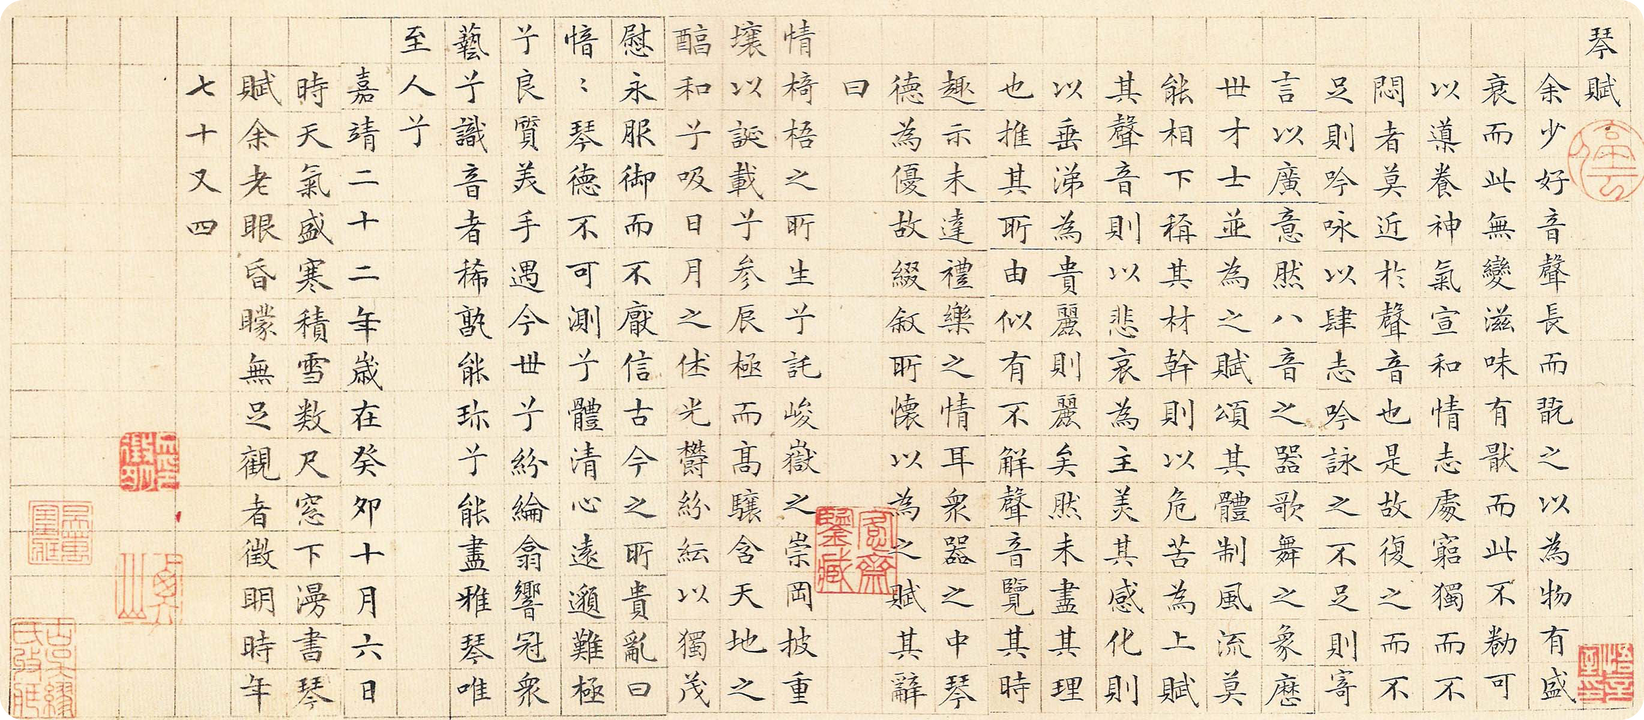 琴賦
余少好音聲長而翫之以為物有盛
衰而此無變滋味有猒而此不勌可
以導養神氣宣和情志處窮獨而不
悶者莫近於聲音也是故復之而不
足則吟咏以肆志吟詠之不足則寄
言以廣意然八音之器歌舞之象歷
世才士並為之賦頌其體制風流莫
能相下稱其材幹則以危苦為上賦
其聲音則以悲哀為主美其感化則
以垂涕為貴麗則麗矣然未盡其理
也推其所由似有不解聲音覽其時
趣示未達禮樂之情耳衆器之中琴
德為優故綴敘所懷以為之賦其辭
曰
情椅梧之所生兮託峻嶽之崇岡披重
壤以誕載兮參辰極而高驤含天地之
醕和兮吸日月之休光欝紛紜以獨茂
慰永服御而不厭信古今之所貴亂曰
愔〻琴德不可測兮體清心遠邈難極
兮良質美手遇今世兮紛綸翕響冠衆
藝兮識音者稀孰能珎兮能盡雅琴唯
至人兮
嘉靖二十二年歲在癸卯十月六日
時天氣盛寒積雪数尺窓下漫書琴
賦余老眼昏矇無足觀者徵明時年
七十又四